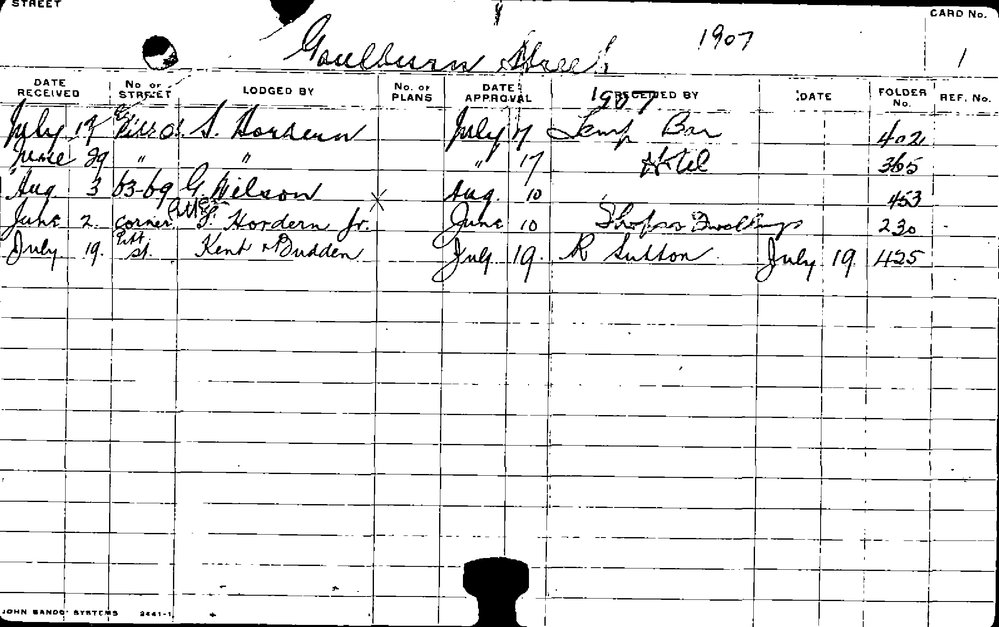 STREET
CARD No.
Goulburn Street 1907 1
DATE RECEIVED No. OF STREET LODGED BY No. OF PLANS DATE APPROVAL RECEIVED BY DATE FOLDER No. REF. No.
1907
July 17 S. Hordern July 17 Temp Bar 402
June 29 " " " 17 Hotel 365
Aug. 3 63-69 G. Wilson X Aug. 10 453
June 2. corner Pitt St Hordern Jr. June 10 Shops & Dwellings 230
July 19. Pitt St. Kent & Budden July 19. R Sutton July 19 425
JOHN SANDS' SYSTEMS 2441-1